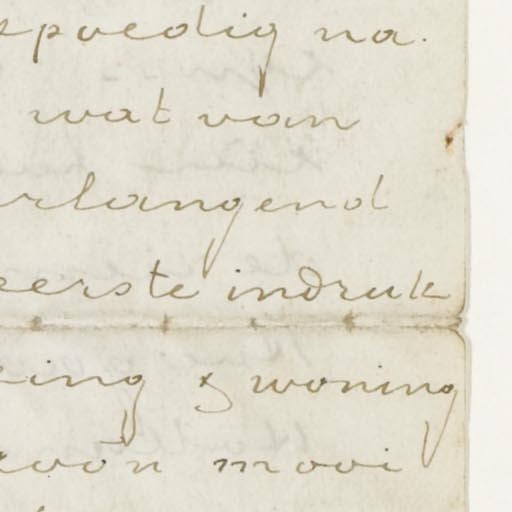 spoedig na.
wat van
rlangend
eerste indruk
ing & woning
woon mooi